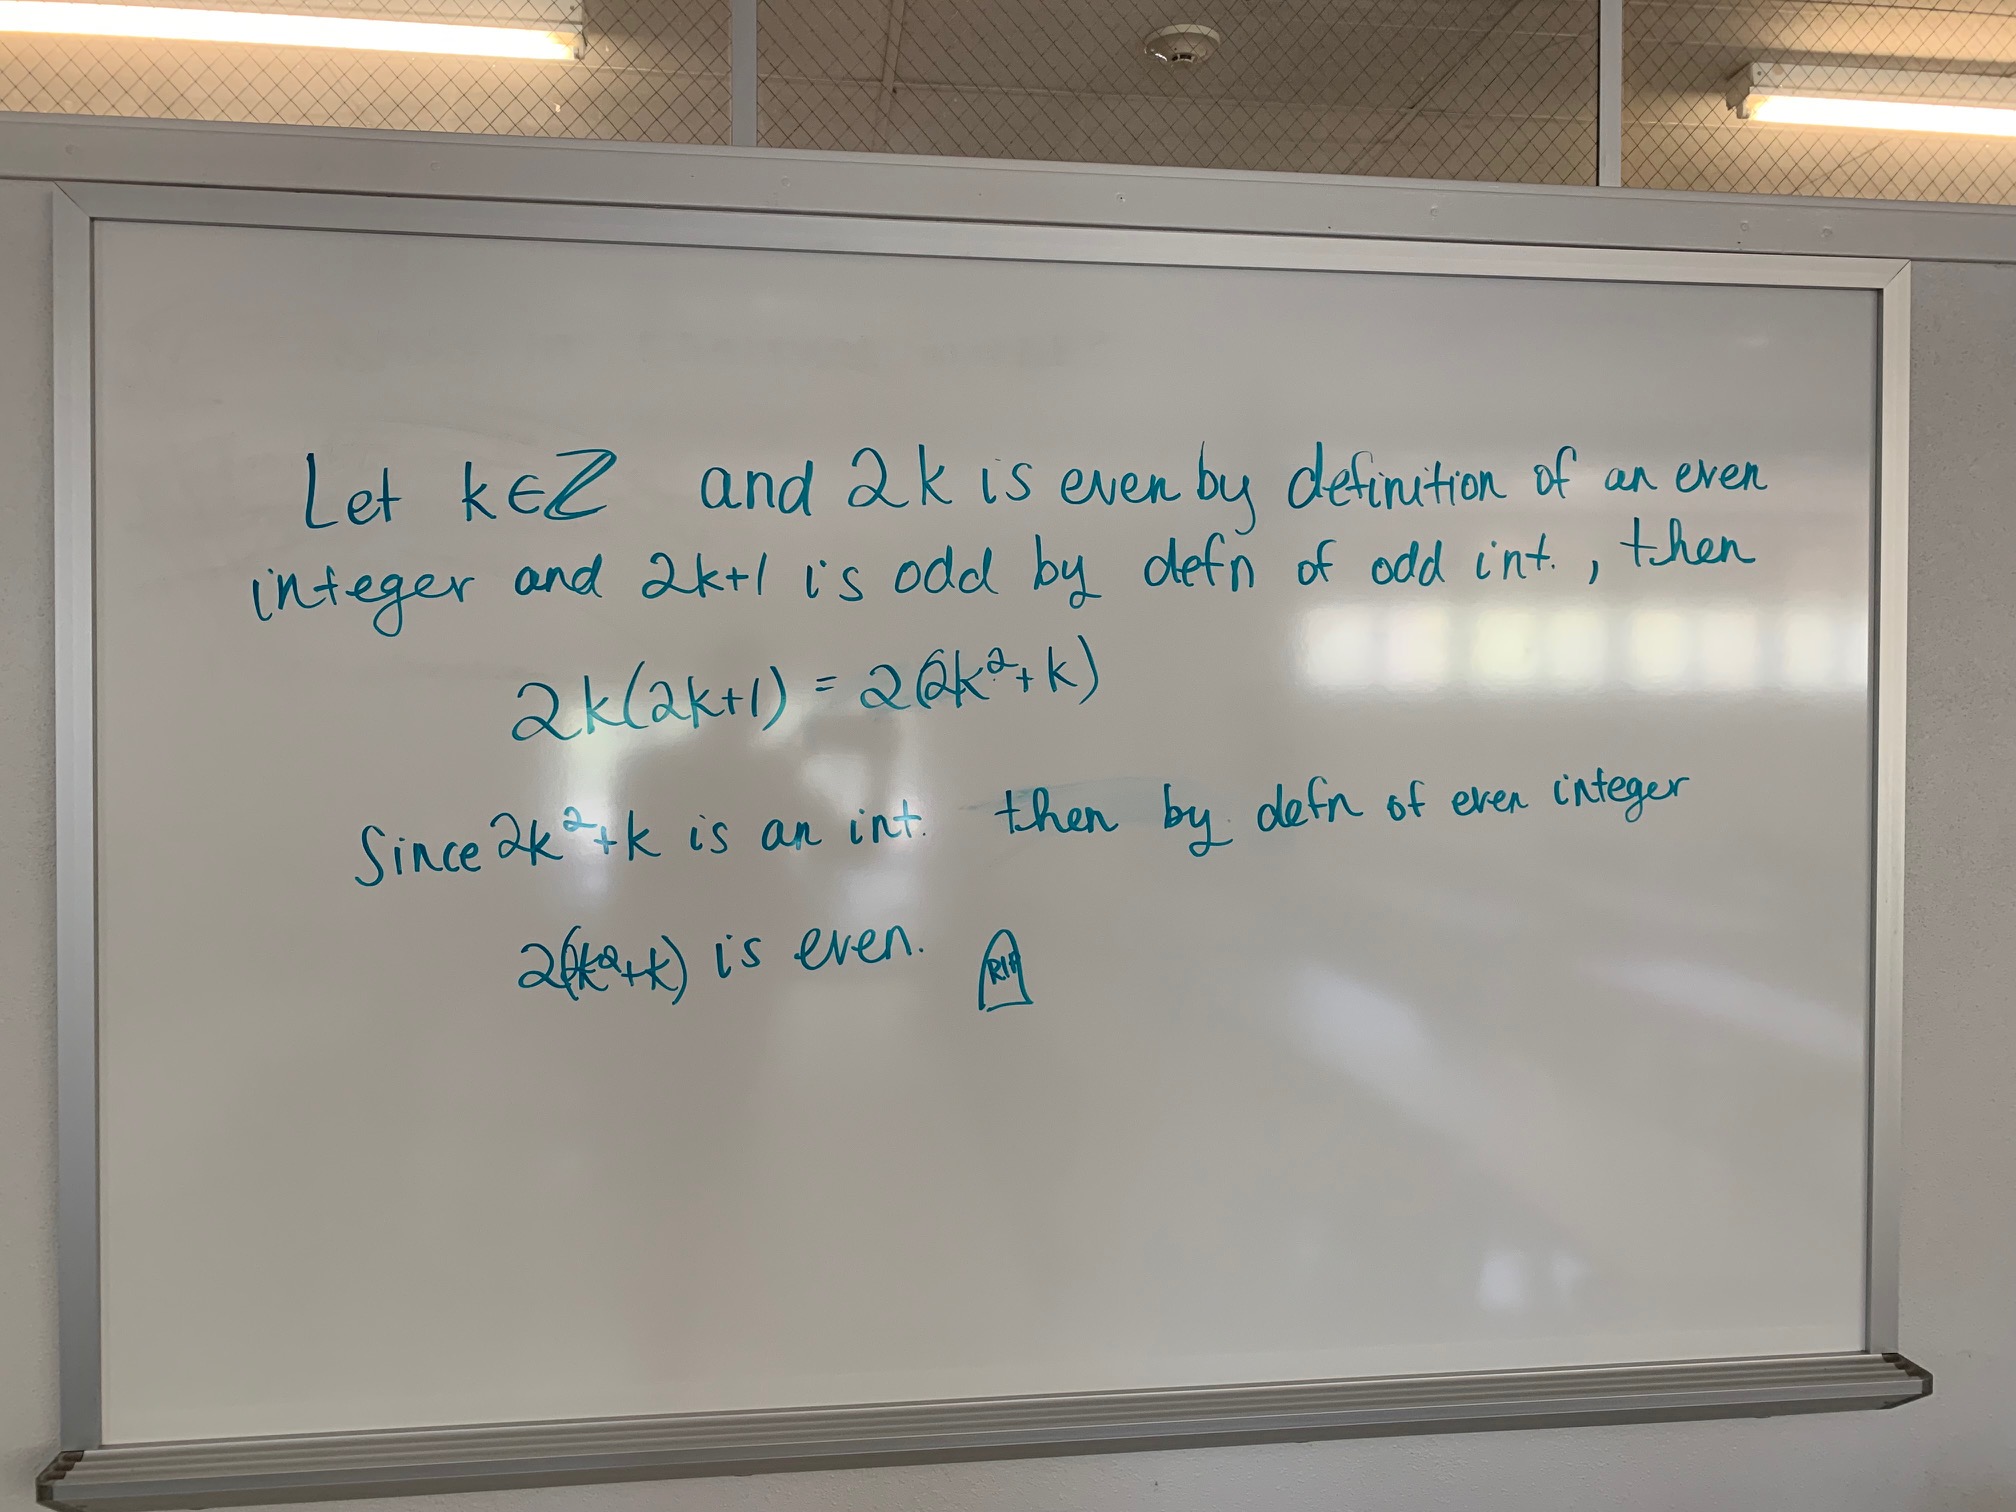 Let k∈ℤ and 2k is even by definition of an even
integer and 2k+1 is odd by defn of odd int., then
2k(2k+1) = 2(2k²+k)
Since 2k²+k is an int. then by defn of even integer
2(2k²+k) is even. RIP